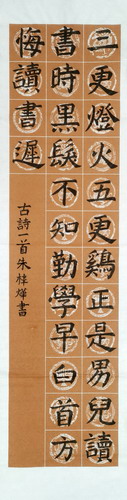 三更燈火五更鷄正是男兒讀
書時黒髮不知勤學早白首方
悔讀書遲
古詩一首朱桂煇書